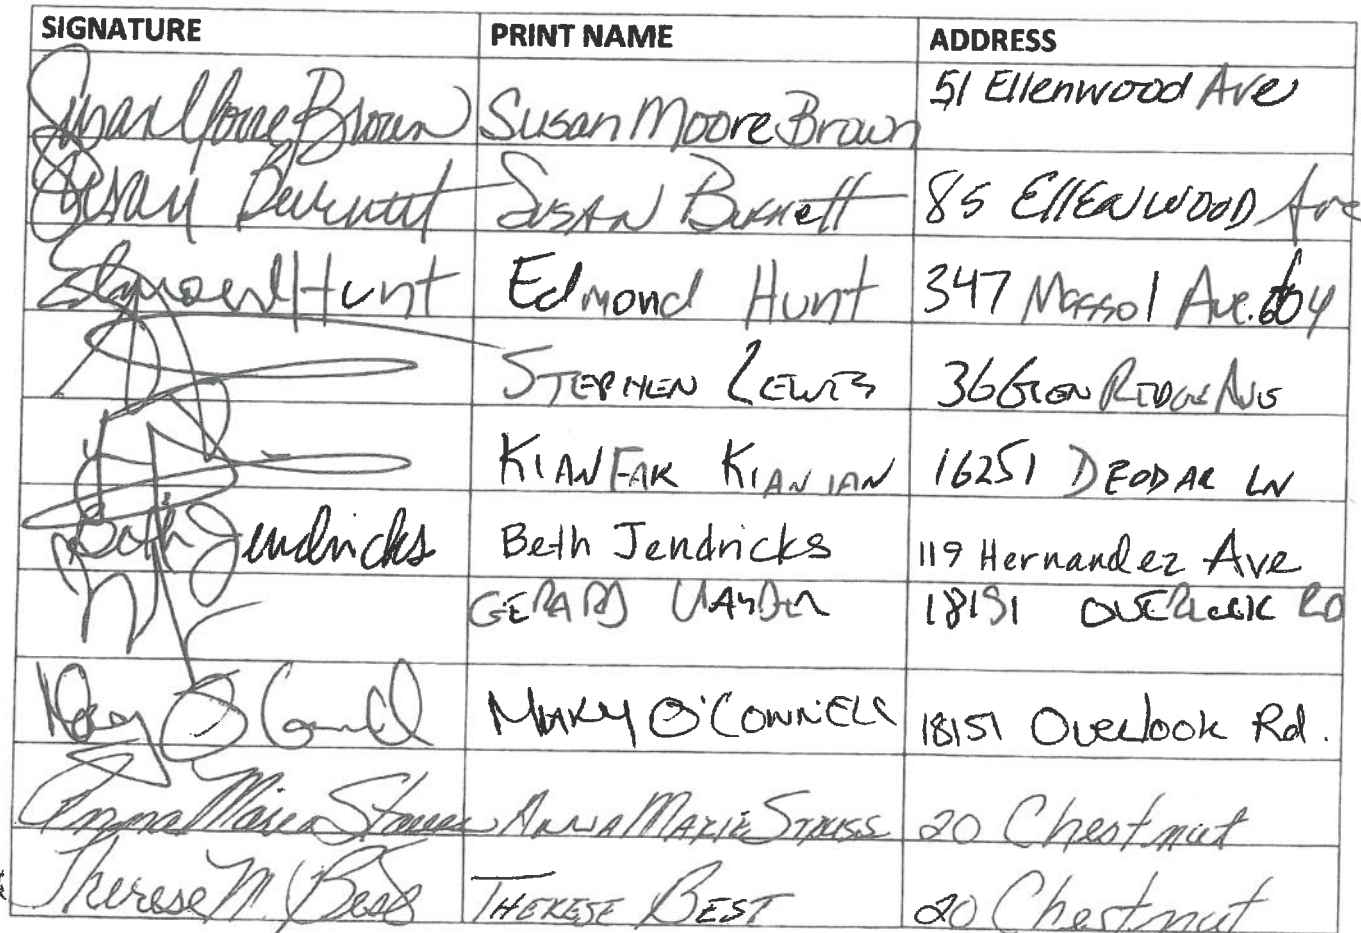 SIGNATURE PRINT NAME ADDRESS
Susan Moore Brown Susan Moore Brown 51 Ellenwood Ave
Susan Burnett Susan Burnett 85 Ellenwood Ave
Edmond Hunt Edmond Hunt 347 Massol Ave. 604
STEPHEN LEWIS 36 GLEN RIDGE AVE
KIANFAR KIANIAN 16251 DEODAR LN
Beth Jendricks Beth Jendricks 119 Hernandez Ave
GERARD 18151 OVERLOOK RD
Mary O'Connell MARY O'CONNELL 18151 Overlook Rd.
Anna Marie Strauss ANNA MARIE STRUSS 20 Chestnut
Therese M. Best THERESE BEST 20 Chestnut